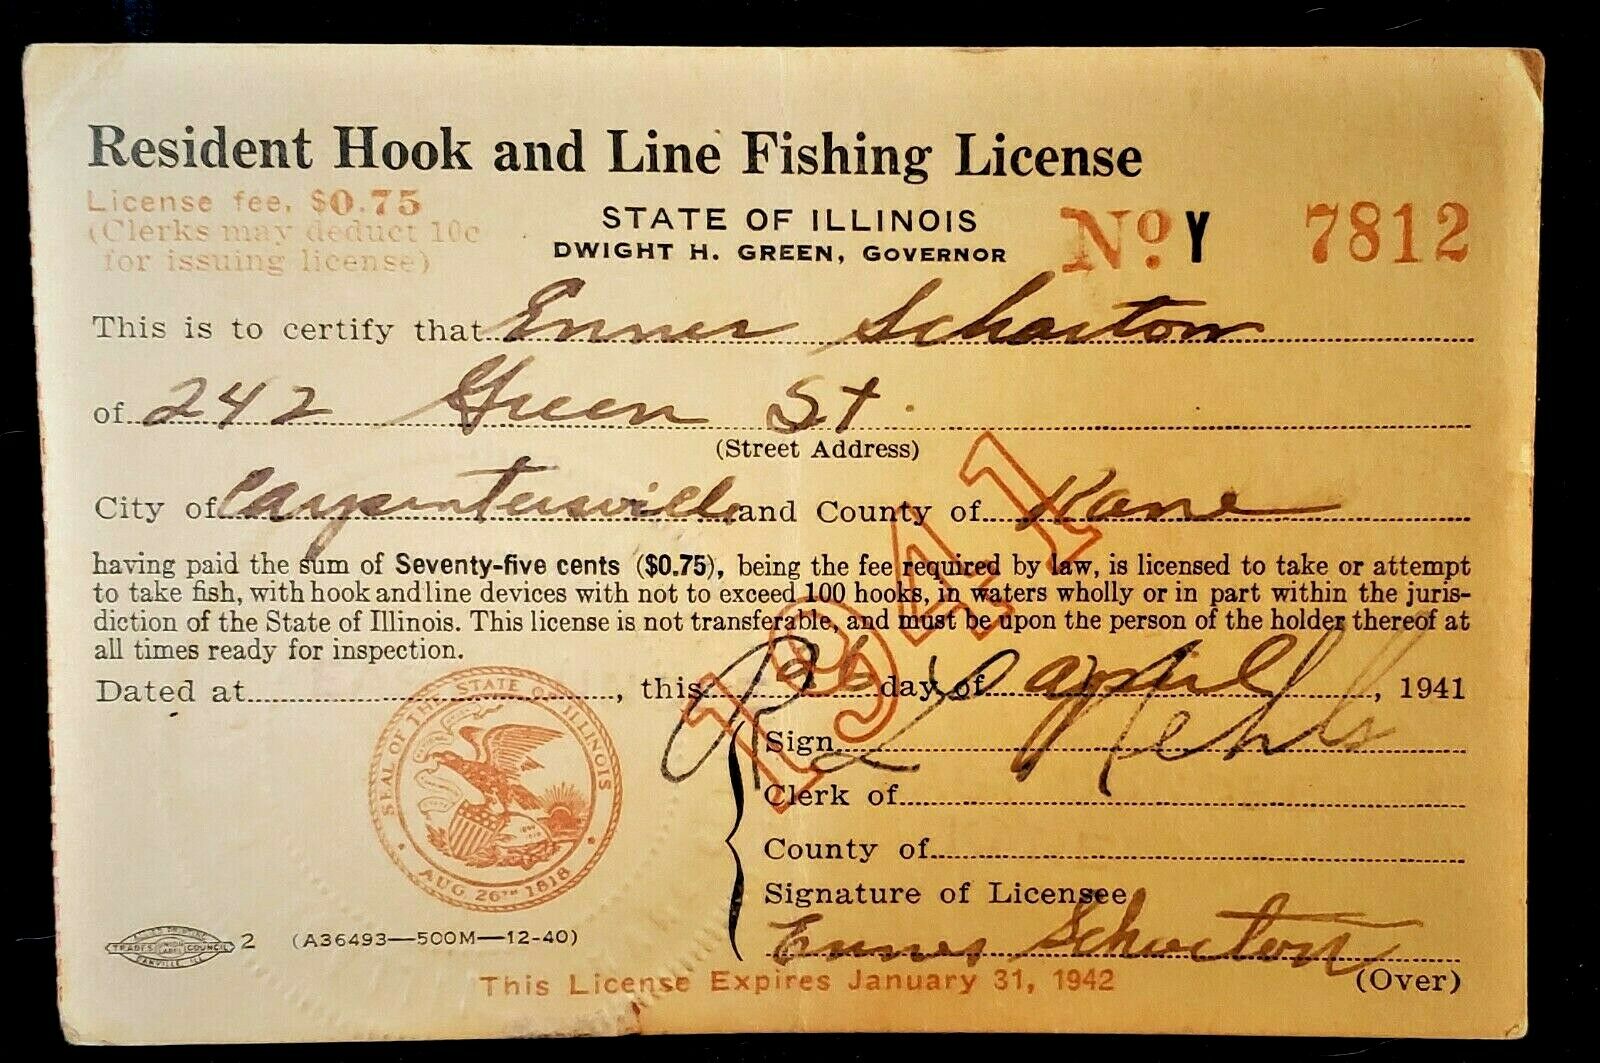 Resident Hook and Line Fishing License
License fee, $0.75
(Clerks may deduct 10c
for issuing license)
STATE OF ILLINOIS
DWIGHT H. GREEN, GOVERNOR
No. Y 7812
This is to certify that Enner
of 242 Green St.
(Street Address)
City of Carpentersville and County of Kane
1941
having paid the sum of Seventy-five cents ($0.75), being the fee required by law, is licensed to take or attempt
to take fish, with hook and line devices with not to exceed 100 hooks, in waters wholly or in part within the juris-
diction of the State of Illinois. This license is not transferable, and must be upon the person of the holder thereof at
all times ready for inspection.
Dated at, this 26 day of april, 1941
SEAL OF THE STATE OF ILLINOIS
AUG. 26TH 1818
Sign R L Nehls
Clerk of
County of
Signature of Licensee
Enner
TRADES UNION LABEL COUNCIL 2 (A36493—500M—12-40)
DANVILLE, ILL
This License Expires January 31, 1942
(Over)